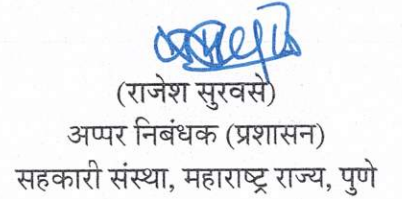 (राजेश सुरवसे)
अप्पर निबंधक (प्रशासन)
सहकारी संस्था, महाराष्ट्र राज्य, पुणे